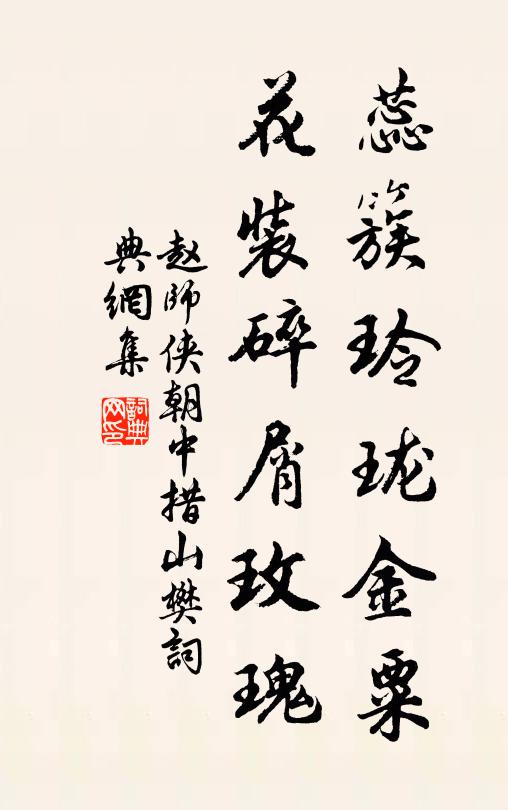 蕊簇玲珑金粟
花装碎屑玫瑰
赵师侠朝中措山樊词
典網集
詞典网印